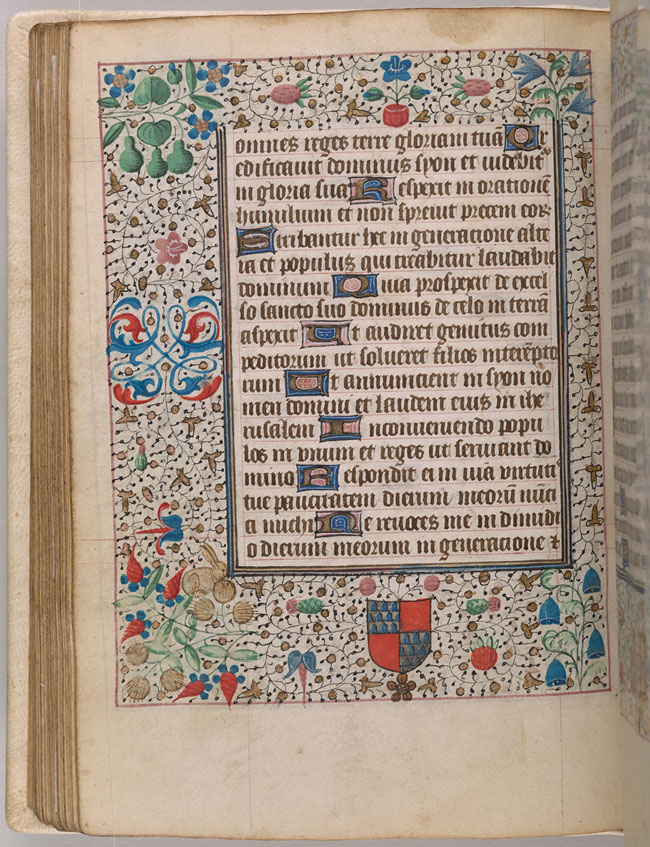 omnes reges terre gloriam tuã Q
edificavit dominus syon et videbit̛
in gloria sua R espexit in orationẽ
humilium et non sprevit precem eor̛
S cribantur hec in generacione alte
ra et populus qui creabitur laudabit
dominum Q uia prospexit de excel
so sancto suo dominus de celo in terrã
aspexit U t audiret gemitus com
peditorum ut solueret filios interẽpto
rum U t annuncient in syon no
men domini et laudem eius in ihe
rusalem I n conveniendo popu
los in unum et reges ut serviant do
mino R espondit ei in via virtuti
tue paucitatem dierum meorũ nũci
a michi N e revoces me in dimidi
o dierum meorum in generacione ⁊